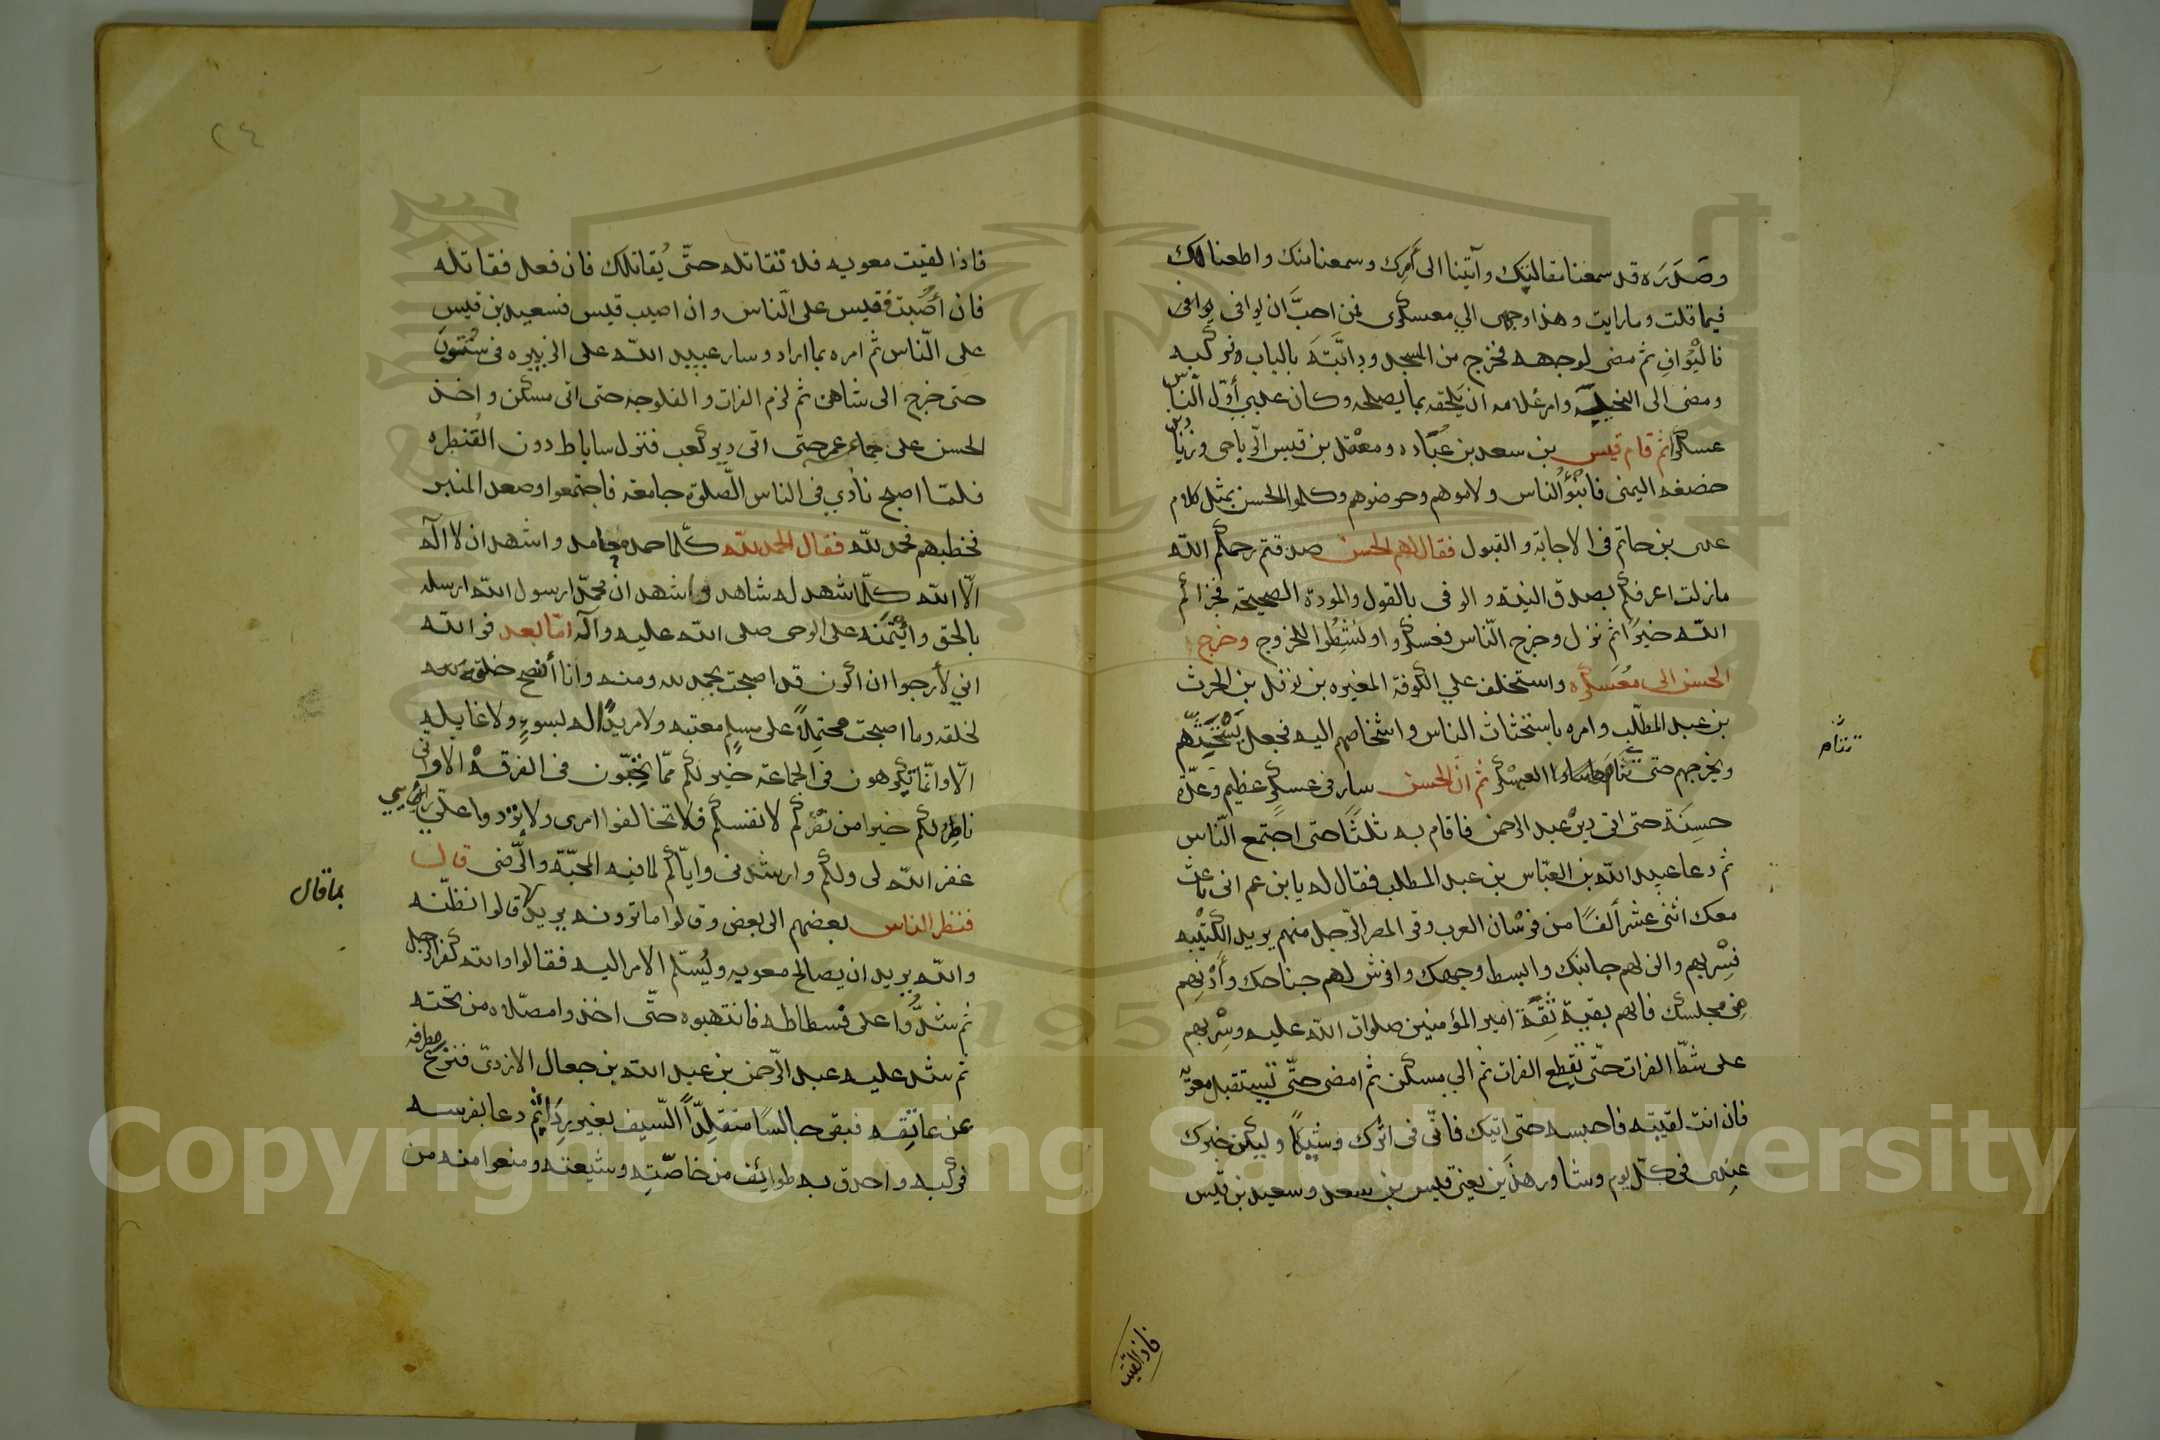 وصدره قد سمعنا مقالتك وآتينا الى أمرك وسمعنا منك واطعنا لك
فيما قلت وما رايت وهذا وجهى الي معسكرى فمن احبَّ ان يوافى يوافى
فاليُوافِ ثم مضى لوجهه فخرج من المسجد ودابَّتهَ بالباب فركبه
ومضى الى النخيله وامر غلامه ان يلحقه بما يصلحه وكان عدي أوّل النّاس
عسكرا ثم قام قيس بن سعد بن عُبَاده ومعْقل بن قيس الرّياحى وزياد بن
حضفه اليمنى فانبُؤُ الناس ولاموهم وحرضوهم وكلموا الحسن بمثل كلام
عدى بن حاتم فى الاجابة والقبول فقال لهم الحسن صدقتم رحمكم الله
مازلت اعرفكم بصدق النيته والوفى بالقول والمودة الصحيحة فجزاكم
الله خيرًا ثم نزل وخرج النّاس فعسكروا ونشِطُوا للخروج وخرج
الحسن الى معسكره واستخلف علي الكوفة المغيره بن نوفل بن الحرث
بن عبد المطلّب وامره باستحثاث الناس واشخاصهم اليه فجعل يَسْتَحِثّهم
ويخرجهم حتى العسكر ثم انَّ الحسن سار فى عسكرٍ عظيمٍ وعدّة
تتام
حسِنَة حتى اتى ديْر عبد الرحمن فاقام به ثلثًا حتى اجتمع النّاس
ثم دعا عبيد الله بن العبّاس بن عبد المطلب فقال له يابن عم انى باعث
معك اثنى عشر ألفًا من فرْسان العرب وقرا المصر الرّجل منهم يريد الكتيْبه
فسِرْ بهم والن لهم جانبك وابسط وجهك وافرش لهم جناحك وأدْنِهم
من مجلسك فانهم بقية ثقة امير المؤمنين صلوات الله عليه وسِرْ بهم
على شطّ الفرات حتّى تقطع الفرات ثم الي مسكن ثم امضى حتّى تستقبل معويه
فان انت لقيته فاحبسه حتى اتيك فانّى فى اثرك وشيكًا وليكن خبرك
عندى فى كل يوم وشاور هذَين يعنى قيس بن سعد وسعيد بن قيس
فاذا لقيت
٢٤
فاذا لقيت معويه فلا تقاتله حتّى يُقاتلك فان فعل فقاتله
فان أُصُبتَ فقيس على النّاس وان اصيب قيس فسعيد بن قيس
على النّاس ثم امره بما اراد وسار عبيد الله على
حتى خرج الى شاهى ثم لزم الفرات والفلوجه حتى اتى مسكن واخذ
الحسن على حتى اتى دير كعب فنزل ساباط دون القُنطره
فلمّا اصبح نادي فى الناس الصّلوة جامعة فاجتمعوا وصعد المنبر
فخطبهم فحمد لله فقال الحمد لله كلّما حمده حامد واشهد ان لا اله
الّا الله كلّما شهد له شاهد واشهد ان محمّدًا رسول الله ارسله
بالحق وائْتمَنَه على الوحى صلى الله عليه وآله امّا بعد فوالله
اني لأرجوا ان اكون قد اصبحت بحمد لله ومنه وانا أنصح خلق الله
لخلقه وما اصبحت محتمِلاً على مسلمٍ معتبه ولا مريدًا له بسوءٍ ولا غايله
الّا وانّما تكرهون فى الجماعة خيرٌ لكم ممّا تحبّون فى الفرقه الا وانى
ناظِرٌ لكم خيرا من نظركم لانفسكم فلا تخالفوا امرى ولا تردوا علىّ رأيي
غفر الله لى ولكم وارشدنى وايّاكم لما فيه المحبّة والرّضى قال
فنظر الناس بعضهم الى بعض وقالوا ما ترونه يريد قالوا نظنّه
بما قال
والله يريد ان يصالح معويه ويُسلّم الامر اليه فقالوا والله كفر الرجل
ثم شدُّوا على فسطاطه فانتهبوه حتّى اخذوا مصلاه من تحته
ثم شد عليه عبد الرّحمن بن عبد الله بن جعال الازدىّ فنزع مطرفه
عن عاتقِه فبقى جالسًا متقلِّدًا السّيف بغير رِدَاءٍ ثم دعا بفرسه
فركبه واحدق به طوائف من خاصّتِه وشيعته ومنعوا منه من
Copyright © King Saud University